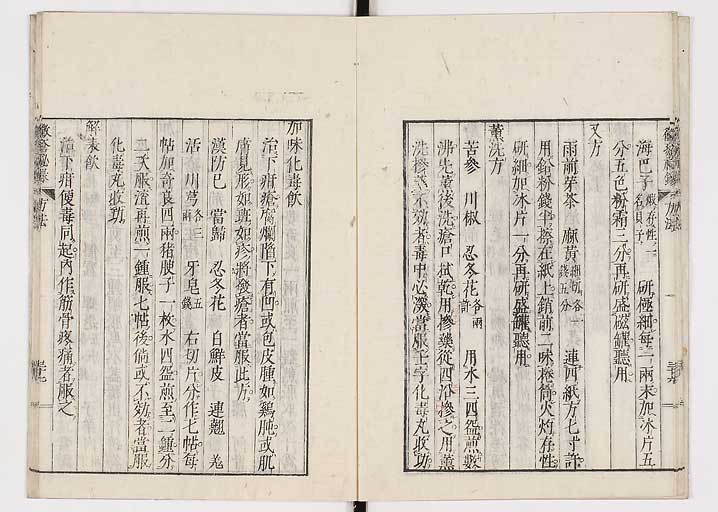 海巴子 煅存性一名貝子 研極細每一兩末加冰片五
分五色粉霜三分再研盛磁罐聽用
又方
雨前芽茶 麻黃 各一錢五分 連四紙方七寸許
用鉛粉錢半摻在紙上銷前二味捲筒火灼存性
研細加冰片一分再研盛罐聽用
薰洗方
苦參 川椒 忍冬花 各一兩許 用水三四盌煎數
沸先薰後洗瘡口拭乾用摻藥從四沿摻之用薰
洗摻藥不効者毒中必深當服壬字化毒丸收功
加味化毒飲
治下疳瘡腐爛陷下有凹或包皮腫如鷄肫或肌
膚見形如斑如疹將發瘡者當服此方
漢防已 當歸 忍冬花 白鮮皮 連翹 羌
活 川芎 各三兩 牙皂 五錢 右切片分作七帖每
帖加奇良四兩猪胰子一枚水四盌煎至二鍾分
二次服渣再煎一鍾服七帖後倘或不効者當服
化毒丸收功
解表飲
治下疳便毒同起内作筋骨疼痛者服之
黴瘡秘録
方法